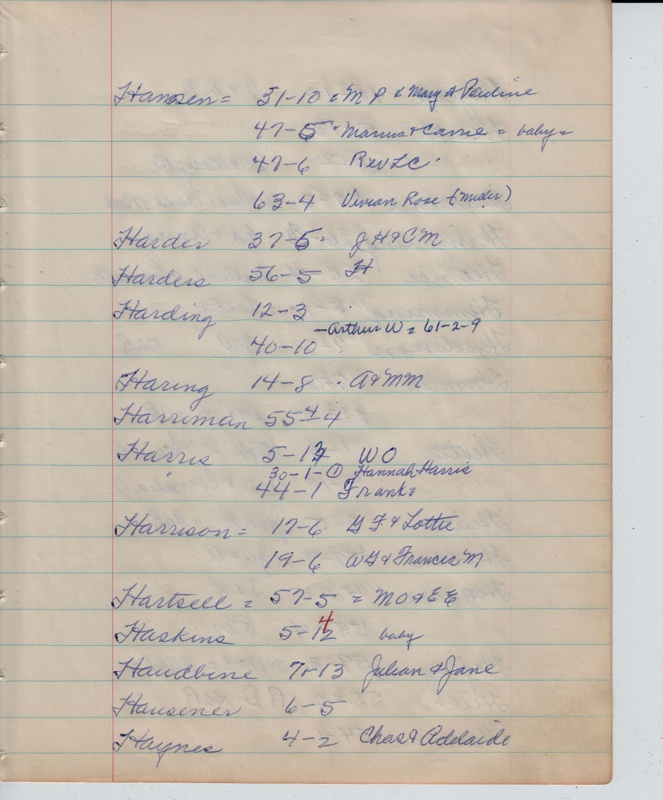 Hansen = 51-10 = M P & Mary & Pauline
47-5 · Marius & Carrie = baby =
47-6 Rev LC ·
63-4 Vivian Rose
Harder 37-5 · JH & CM
Harders 56-5 H
Harding 12-3
- Arthur W = 61-2-9
40-10
Haring 14-8 · A & MM
Harriman 55-4
Harris 5-17 WO
30-1-① Hannah Harris
44-1 Frank =
Harrison = 17-6 G F & Lottie
19-6 WG & Frances M
Hartsell = 57-5 = MO & EE
4
Haskins 5-12 baby
Haudbine 7-13 Julian & Jane
Hausener 6-5
Haynes 4-2 Chas & Adelaide